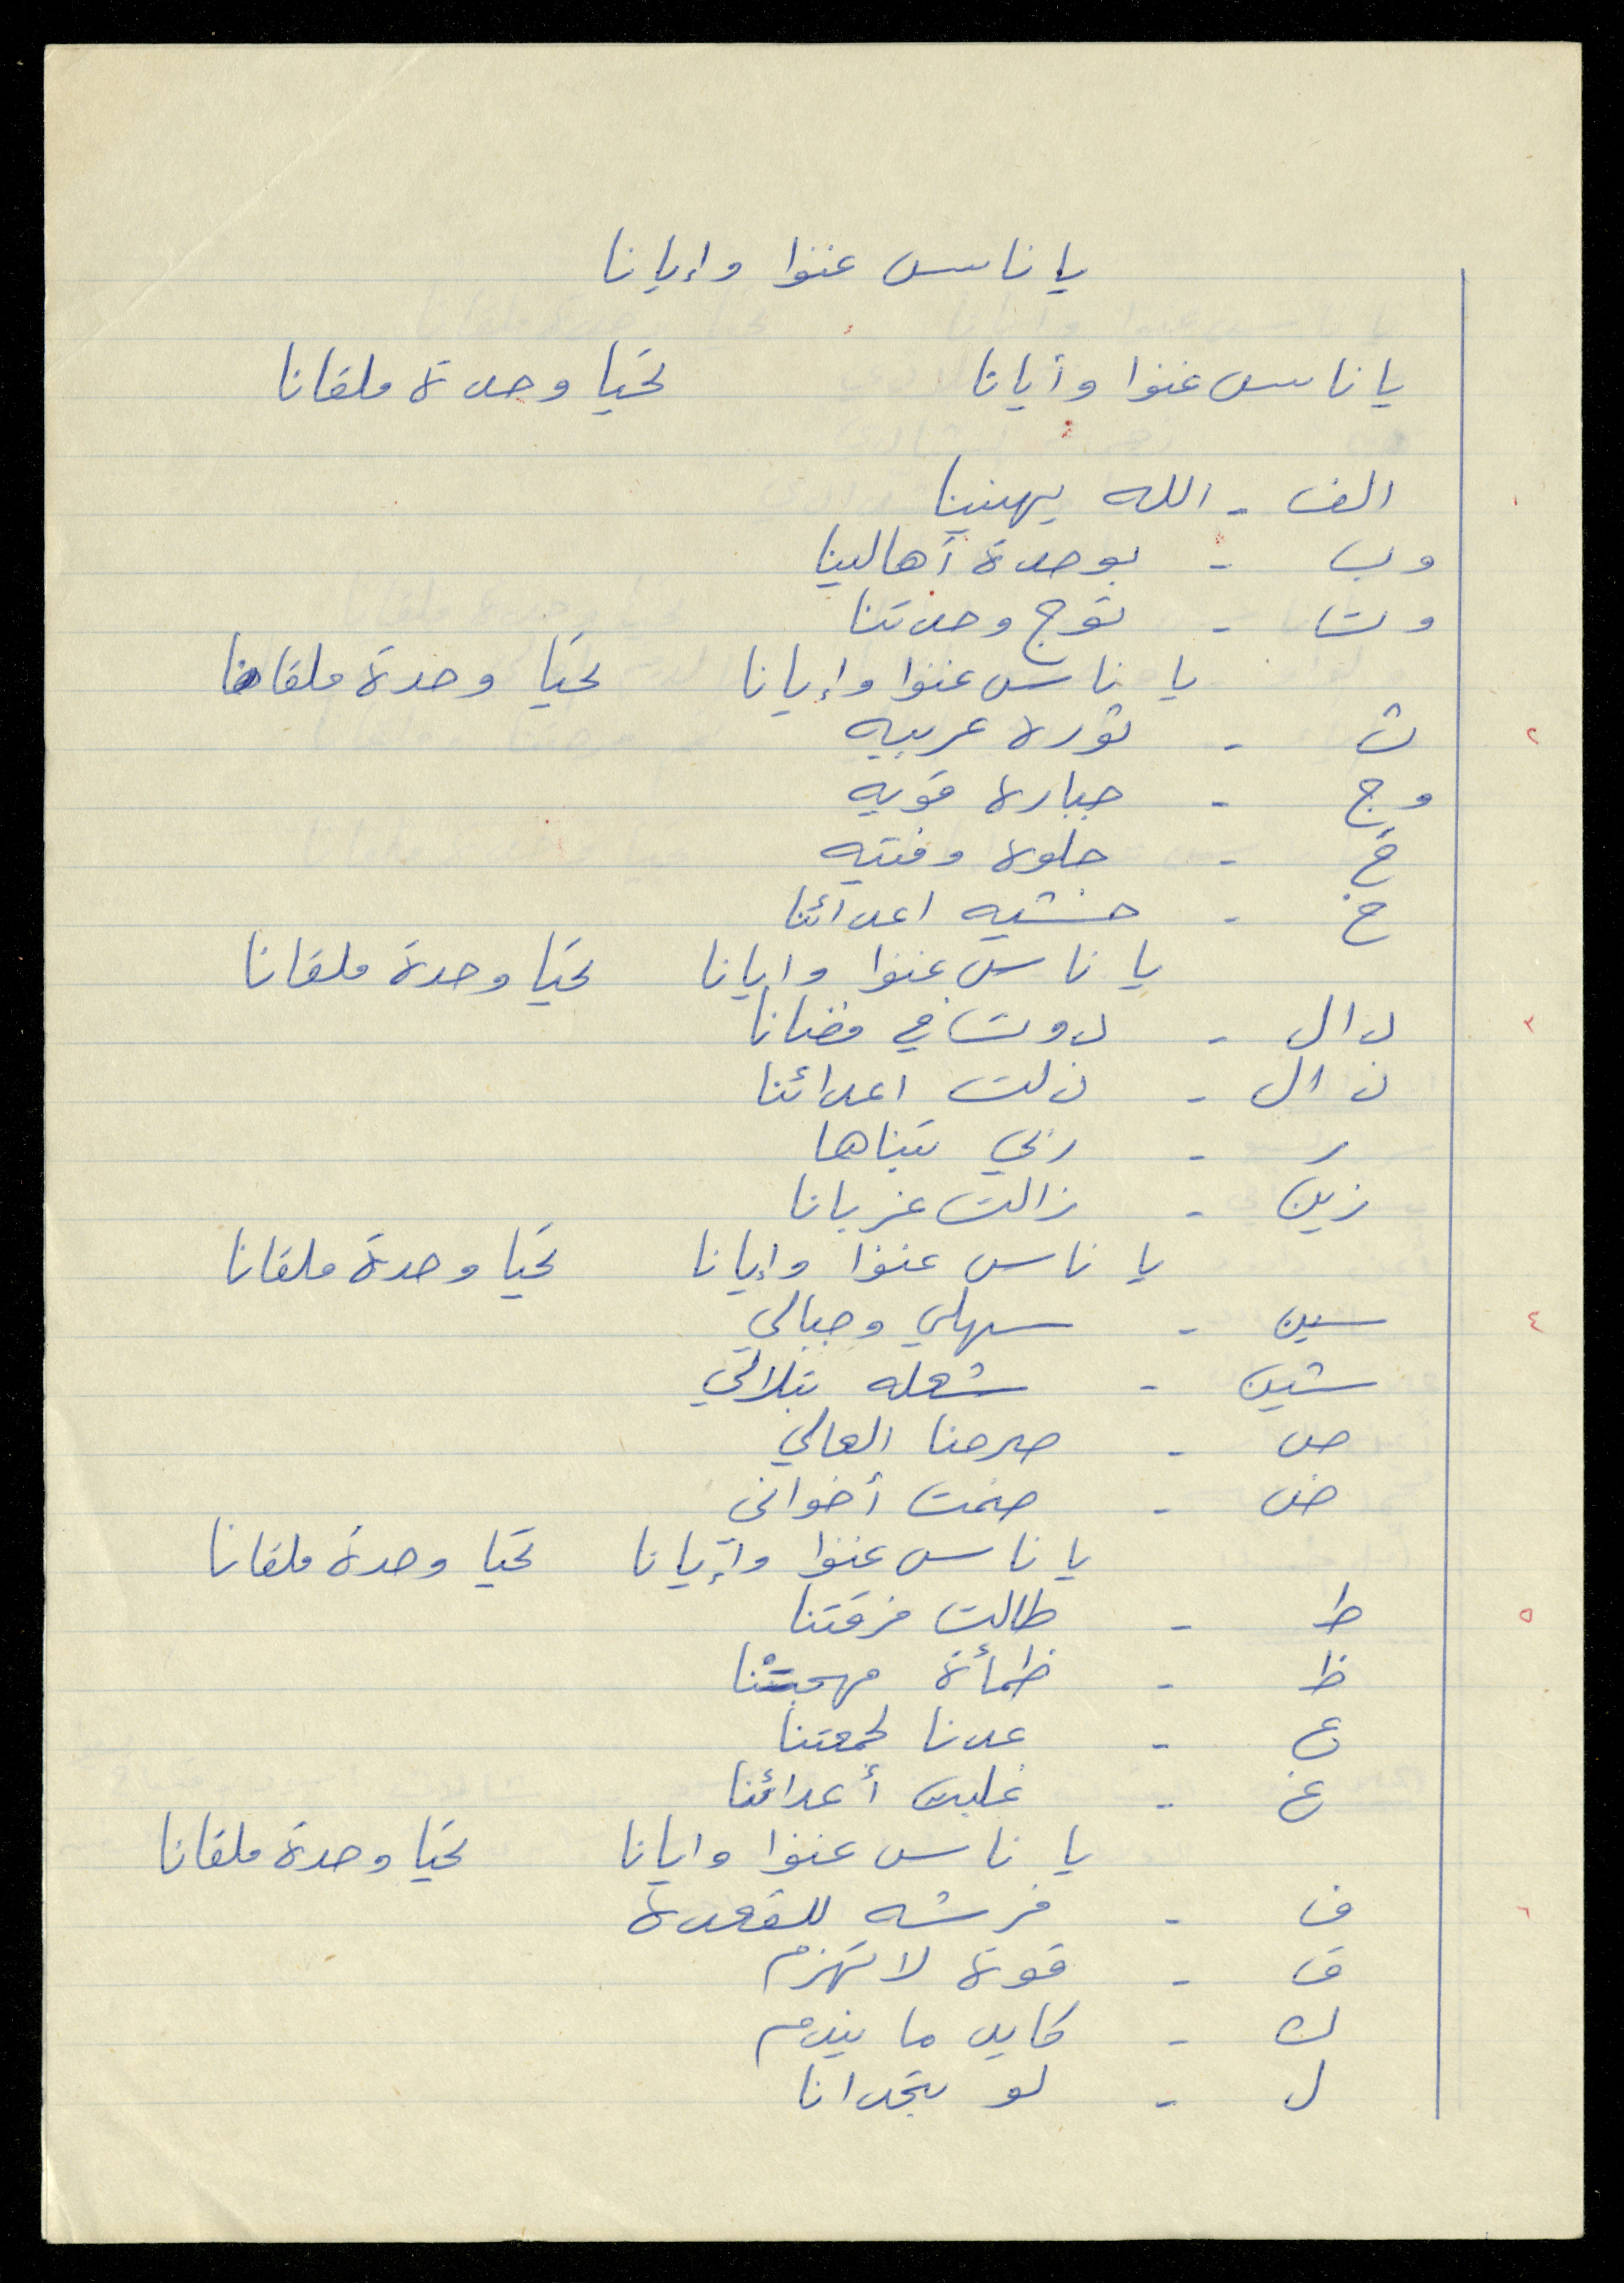 يا ناس غنوا وإيانا
يا ناس غنوا وأيانا تحيا وحدة ملقانا
١ الف - الله يهنينا
وب - بوحدة أهالينا
وت - توج وحدتنا
يا ناس غنوا وإيانا تحيا وحدة ملقانا
٢ ث - ثورة عربيه
وج - جباره قويه
ح - حلوه وفتيه
خ - خشيه اعدائنا
يا ناس غنوا وايانا تحيا وحدة ملقانا
٣ دال - دوت في فضانا
ذال - ذلت اعدائنا
ر - ربي تبناها
زين - زالت غربانا
يا ناس غنوا وإيانا تحيا وحدة ملقانا
٤ سين - سهلي وجبالي
شين - شعله بتلالي
ص - صرحنا العالي
ض - ضمت أخواني
يا ناس غنوا وإيانا تحيا وحدة ملقانا
٥ ط - طالت فرقتنا
ظ - ظمأة مهجتنا
ع - عدنا لجمعتنا
غ - غلبت أعدائنا
يا ناس غنوا وايانا تحيا وحدة ملقانا
٦ ف - فرشه للقعدة
ق - قوة لا تهزم
ك - كايد ما يندم
ل - لو يتحدانا